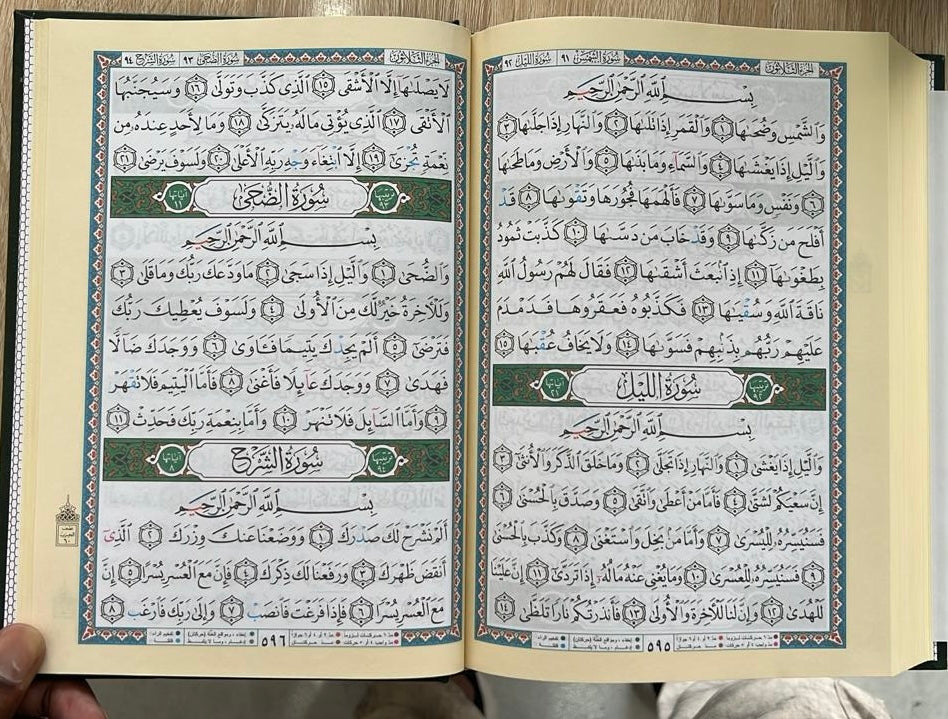 الجزء الثلاثون سورة الشمس ٩١ سورة الليل ٩٢
بِسْمِ اللَّهِ الرَّحْمَٰنِ الرَّحِيمِ
وَالشَّمْسِ وَضُحَىٰهَا ١ وَالْقَمَرِ إِذَا تَلَىٰهَا ٢ وَالنَّهَارِ إِذَا جَلَّىٰهَا ٣
وَالَّيْلِ إِذَا يَغْشَىٰهَا ٤ وَالسَّمَآءِ وَمَا بَنَىٰهَا ٥ وَالْأَرْضِ وَمَا طَحَىٰهَا
٦ وَنَفْسٍ وَمَا سَوَّىٰهَا ٧ فَأَلْهَمَهَا فُجُورَهَا وَتَقْوَىٰهَا ٨ قَدْ
أَفْلَحَ مَن زَكَّىٰهَا ٩ وَقَدْ خَابَ مَن دَسَّىٰهَا ١٠ كَذَّبَتْ ثَمُودُ
بِطَغْوَىٰهَآ ١١ إِذِ انۢبَعَثَ أَشْقَىٰهَا ١٢ فَقَالَ لَهُمْ رَسُولُ اللَّهِ
نَاقَةَ اللَّهِ وَسُقْيَٰهَا ١٣ فَكَذَّبُوهُ فَعَقَرُوهَا فَدَمْدَمَ
عَلَيْهِمْ رَبُّهُم بِذَنۢبِهِمْ فَسَوَّىٰهَا ١٤ وَلَا يَخَافُ عُقْبَٰهَا ١٥
ترتيبها ٩٢ سُورَةُ اللَّيْلِ آياتها ٢١
بِسْمِ اللَّهِ الرَّحْمَٰنِ الرَّحِيمِ
وَالَّيْلِ إِذَا يَغْشَىٰ ١ وَالنَّهَارِ إِذَا تَجَلَّىٰ ٢ وَمَا خَلَقَ الذَّكَرَ وَالْأُنثَىٰٓ ٣
إِنَّ سَعْيَكُمْ لَشَتَّىٰ ٤ فَأَمَّا مَنْ أَعْطَىٰ وَاتَّقَىٰ ٥ وَصَدَّقَ بِالْحُسْنَىٰ ٦
فَسَنُيَسِّرُهُۥ لِلْيُسْرَىٰ ٧ وَأَمَّا مَنۢ بَخِلَ وَاسْتَغْنَىٰ ٨ وَكَذَّبَ بِالْحُسْنَىٰ
٩ فَسَنُيَسِّرُهُۥ لِلْعُسْرَىٰ ١٠ وَمَا يُغْنِى عَنْهُ مَالُهُۥٓ إِذَا تَرَدَّىٰٓ ١١ إِنَّ عَلَيْنَا
لَلْهُدَىٰ ١٢ وَإِنَّ لَنَا لَلْءَاخِرَةَ وَالْأُولَىٰ ١٣ فَأَنذَرْتُكُمْ نَارًا تَلَظَّىٰ ١٤
٥٩٥
سورة الضحى ٩٣ سورة الشرح ٩٤ الجزء الثلاثون
لَا يَصْلَىٰهَآ إِلَّا الْأَشْقَى ١٥ الَّذِى كَذَّبَ وَتَوَلَّىٰ ١٦ وَسَيُجَنَّبُهَا
الْأَتْقَى ١٧ الَّذِى يُؤْتِى مَالَهُۥ يَتَزَكَّىٰ ١٨ وَمَا لِأَحَدٍ عِندَهُۥ مِن
نِّعْمَةٍ تُجْزَىٰٓ ١٩ إِلَّا ابْتِغَآءَ وَجْهِ رَبِّهِ الْأَعْلَىٰ ٢٠ وَلَسَوْفَ يَرْضَىٰ ٢١
ترتيبها ٩٣ سُورَةُ الضُّحَىٰ آياتها ١١
بِسْمِ اللَّهِ الرَّحْمَٰنِ الرَّحِيمِ
وَالضُّحَىٰ ١ وَالَّيْلِ إِذَا سَجَىٰ ٢ مَا وَدَّعَكَ رَبُّكَ وَمَا قَلَىٰ ٣
وَلَلْءَاخِرَةُ خَيْرٌ لَّكَ مِنَ الْأُولَىٰ ٤ وَلَسَوْفَ يُعْطِيكَ رَبُّكَ
فَتَرْضَىٰٓ ٥ أَلَمْ يَجِدْكَ يَتِيمًا فَـَٔاوَىٰ ٦ وَوَجَدَكَ ضَآلًّا
فَهَدَىٰ ٧ وَوَجَدَكَ عَآئِلًا فَأَغْنَىٰ ٨ فَأَمَّا الْيَتِيمَ فَلَا تَقْهَرْ
٩ وَأَمَّا السَّآئِلَ فَلَا تَنْهَرْ ١٠ وَأَمَّا بِنِعْمَةِ رَبِّكَ فَحَدِّثْ ١١
ترتيبها ٩٤ سُورَةُ الشَّرْحِ آياتها ٨
بِسْمِ اللَّهِ الرَّحْمَٰنِ الرَّحِيمِ
أَلَمْ نَشْرَحْ لَكَ صَدْرَكَ ١ وَوَضَعْنَا عَنكَ وِزْرَكَ ٢ الَّذِىٓ
أَنقَضَ ظَهْرَكَ ٣ وَرَفَعْنَا لَكَ ذِكْرَكَ ٤ فَإِنَّ مَعَ الْعُسْرِ يُسْرًا ٥ إِنَّ
مَعَ الْعُسْرِ يُسْرًا ٦ فَإِذَا فَرَغْتَ فَانصَبْ ٧ وَإِلَىٰ رَبِّكَ فَارْغَب ٨
٥٩٦